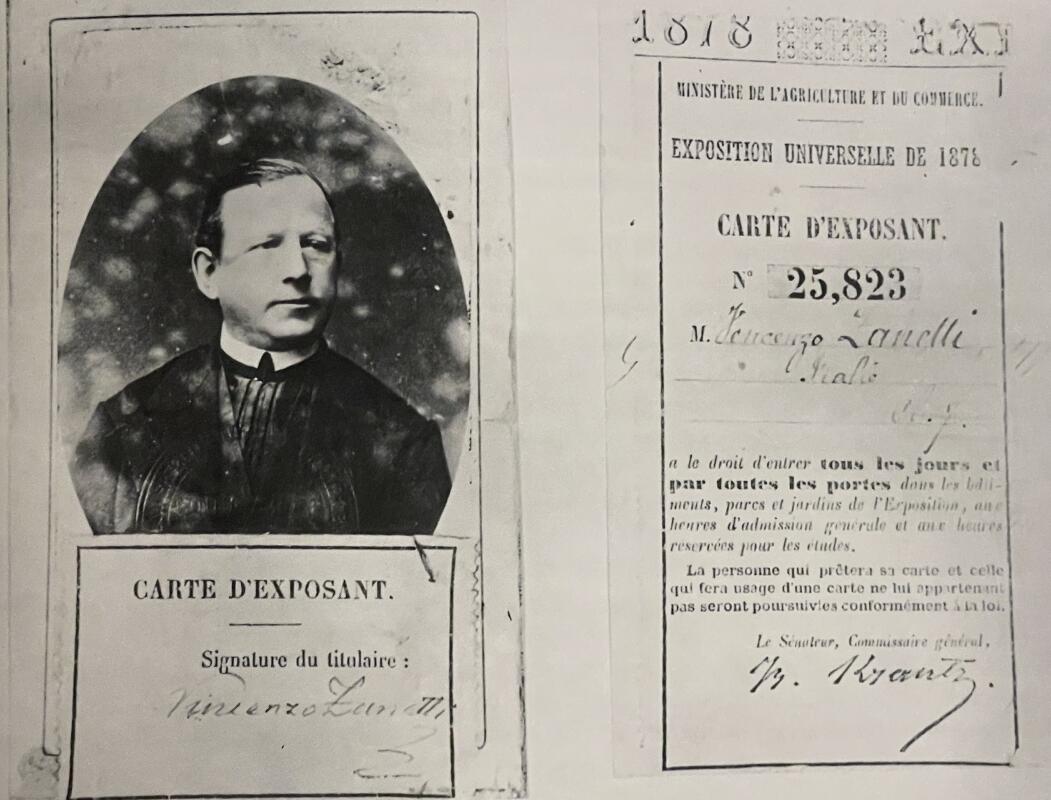 CARTE D'EXPOSANT.
Signature du titulaire :
Vincenzo Zanetti
1878
MINISTÈRE DE L'AGRICULTURE ET DU COMMERCE.
EXPOSITION UNIVERSELLE DE 1878
CARTE D'EXPOSANT.
N° 25,823
M. Vencenzo Zanelli
Italie
a le droit d'entrer tous les jours et
par toutes les portes dans les bâti-
ments, parcs et jardins de l'Exposition, aux
heures d'admission générale et aux heures
réservées pour les études.
La personne qui prêtera sa carte et celle
qui fera usage d'une carte ne lui appartenant
pas seront poursuivies conformément à la loi.
Le Sénateur, Commissaire général,
Krantz.